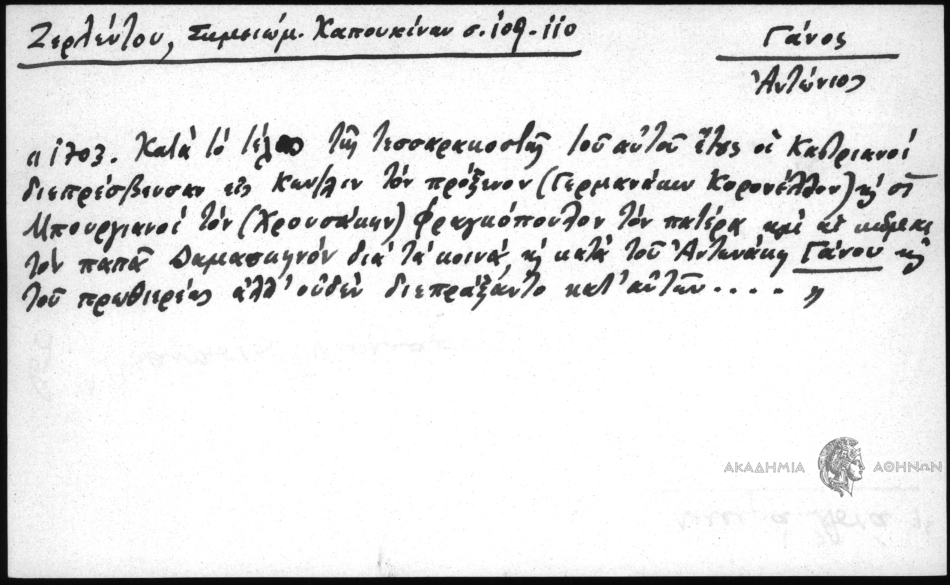 Ζερλέντου, Σημειώμ. Καπουκίνων σ. 109-110
Γάνος
Ἀντώνιος
"1703. Κατὰ τὸ τέλος τῆς τεσσαρακοστῆς τοῦ αὐτοῦ ἔτους οἱ Καστριανοί
διεπρέσβευσαν εἰς Κων/λιν τὸν πρόξενον (Γερμανάκην Κορονέλλον) κ οἱ
Μπουργιανοί τὸν (Χρουσάκην) Φραγκόπουλον τὸν πατέρα καὶ αἱ κῶμαι
τὸν παπᾶ Δαμασκηνόν διά τά κοινά, κ κατά τοῦ Ἀντωνάκη Γάνου κ
τοῦ πρωθιερέως ἀλλ' οὐδὲν διεπράξαντο κατ' αὐτῶν . . . . "
ΑΚΑΔΗΜΙΑ ΑΘΗΝΩΝ